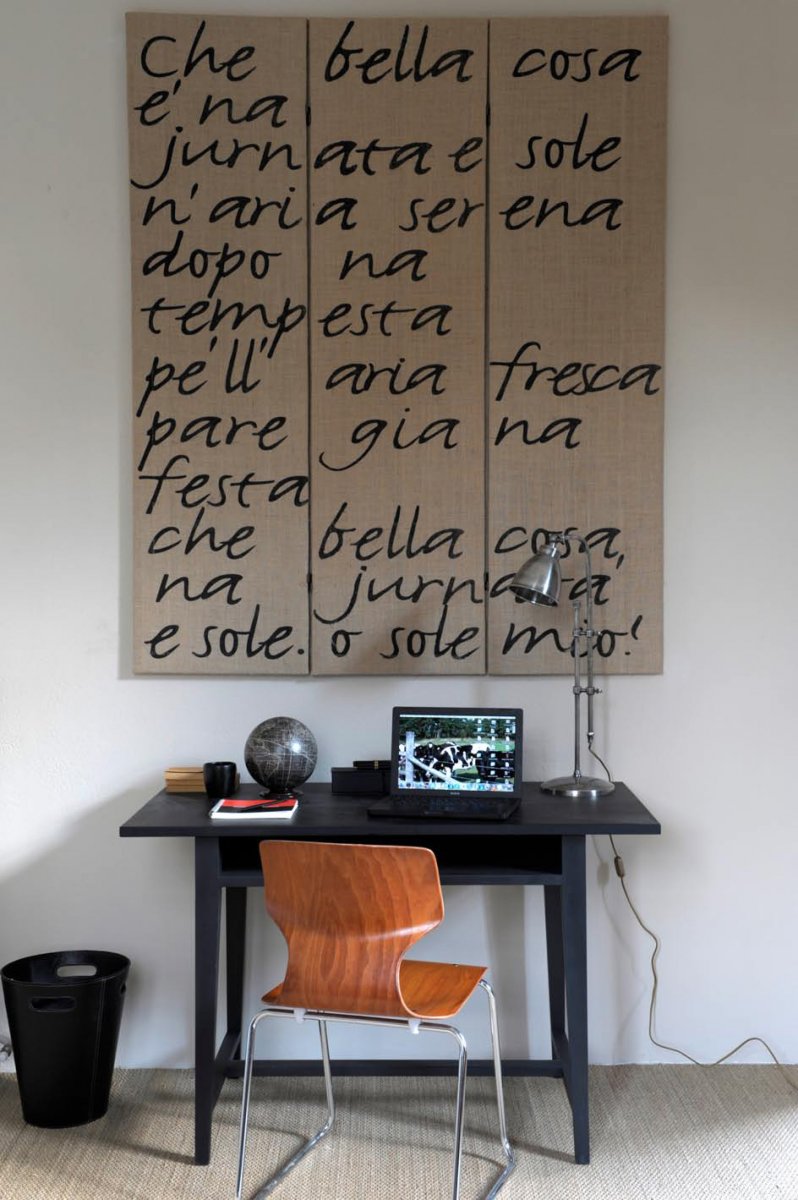 Che bella cosa
e' na
jurnata e sole
n'aria serena
dopo na
tempesta
pe'll' aria fresca
pare gia na
festa
che bella cosa,
na jurn'ata'
e sole. o sole mio!